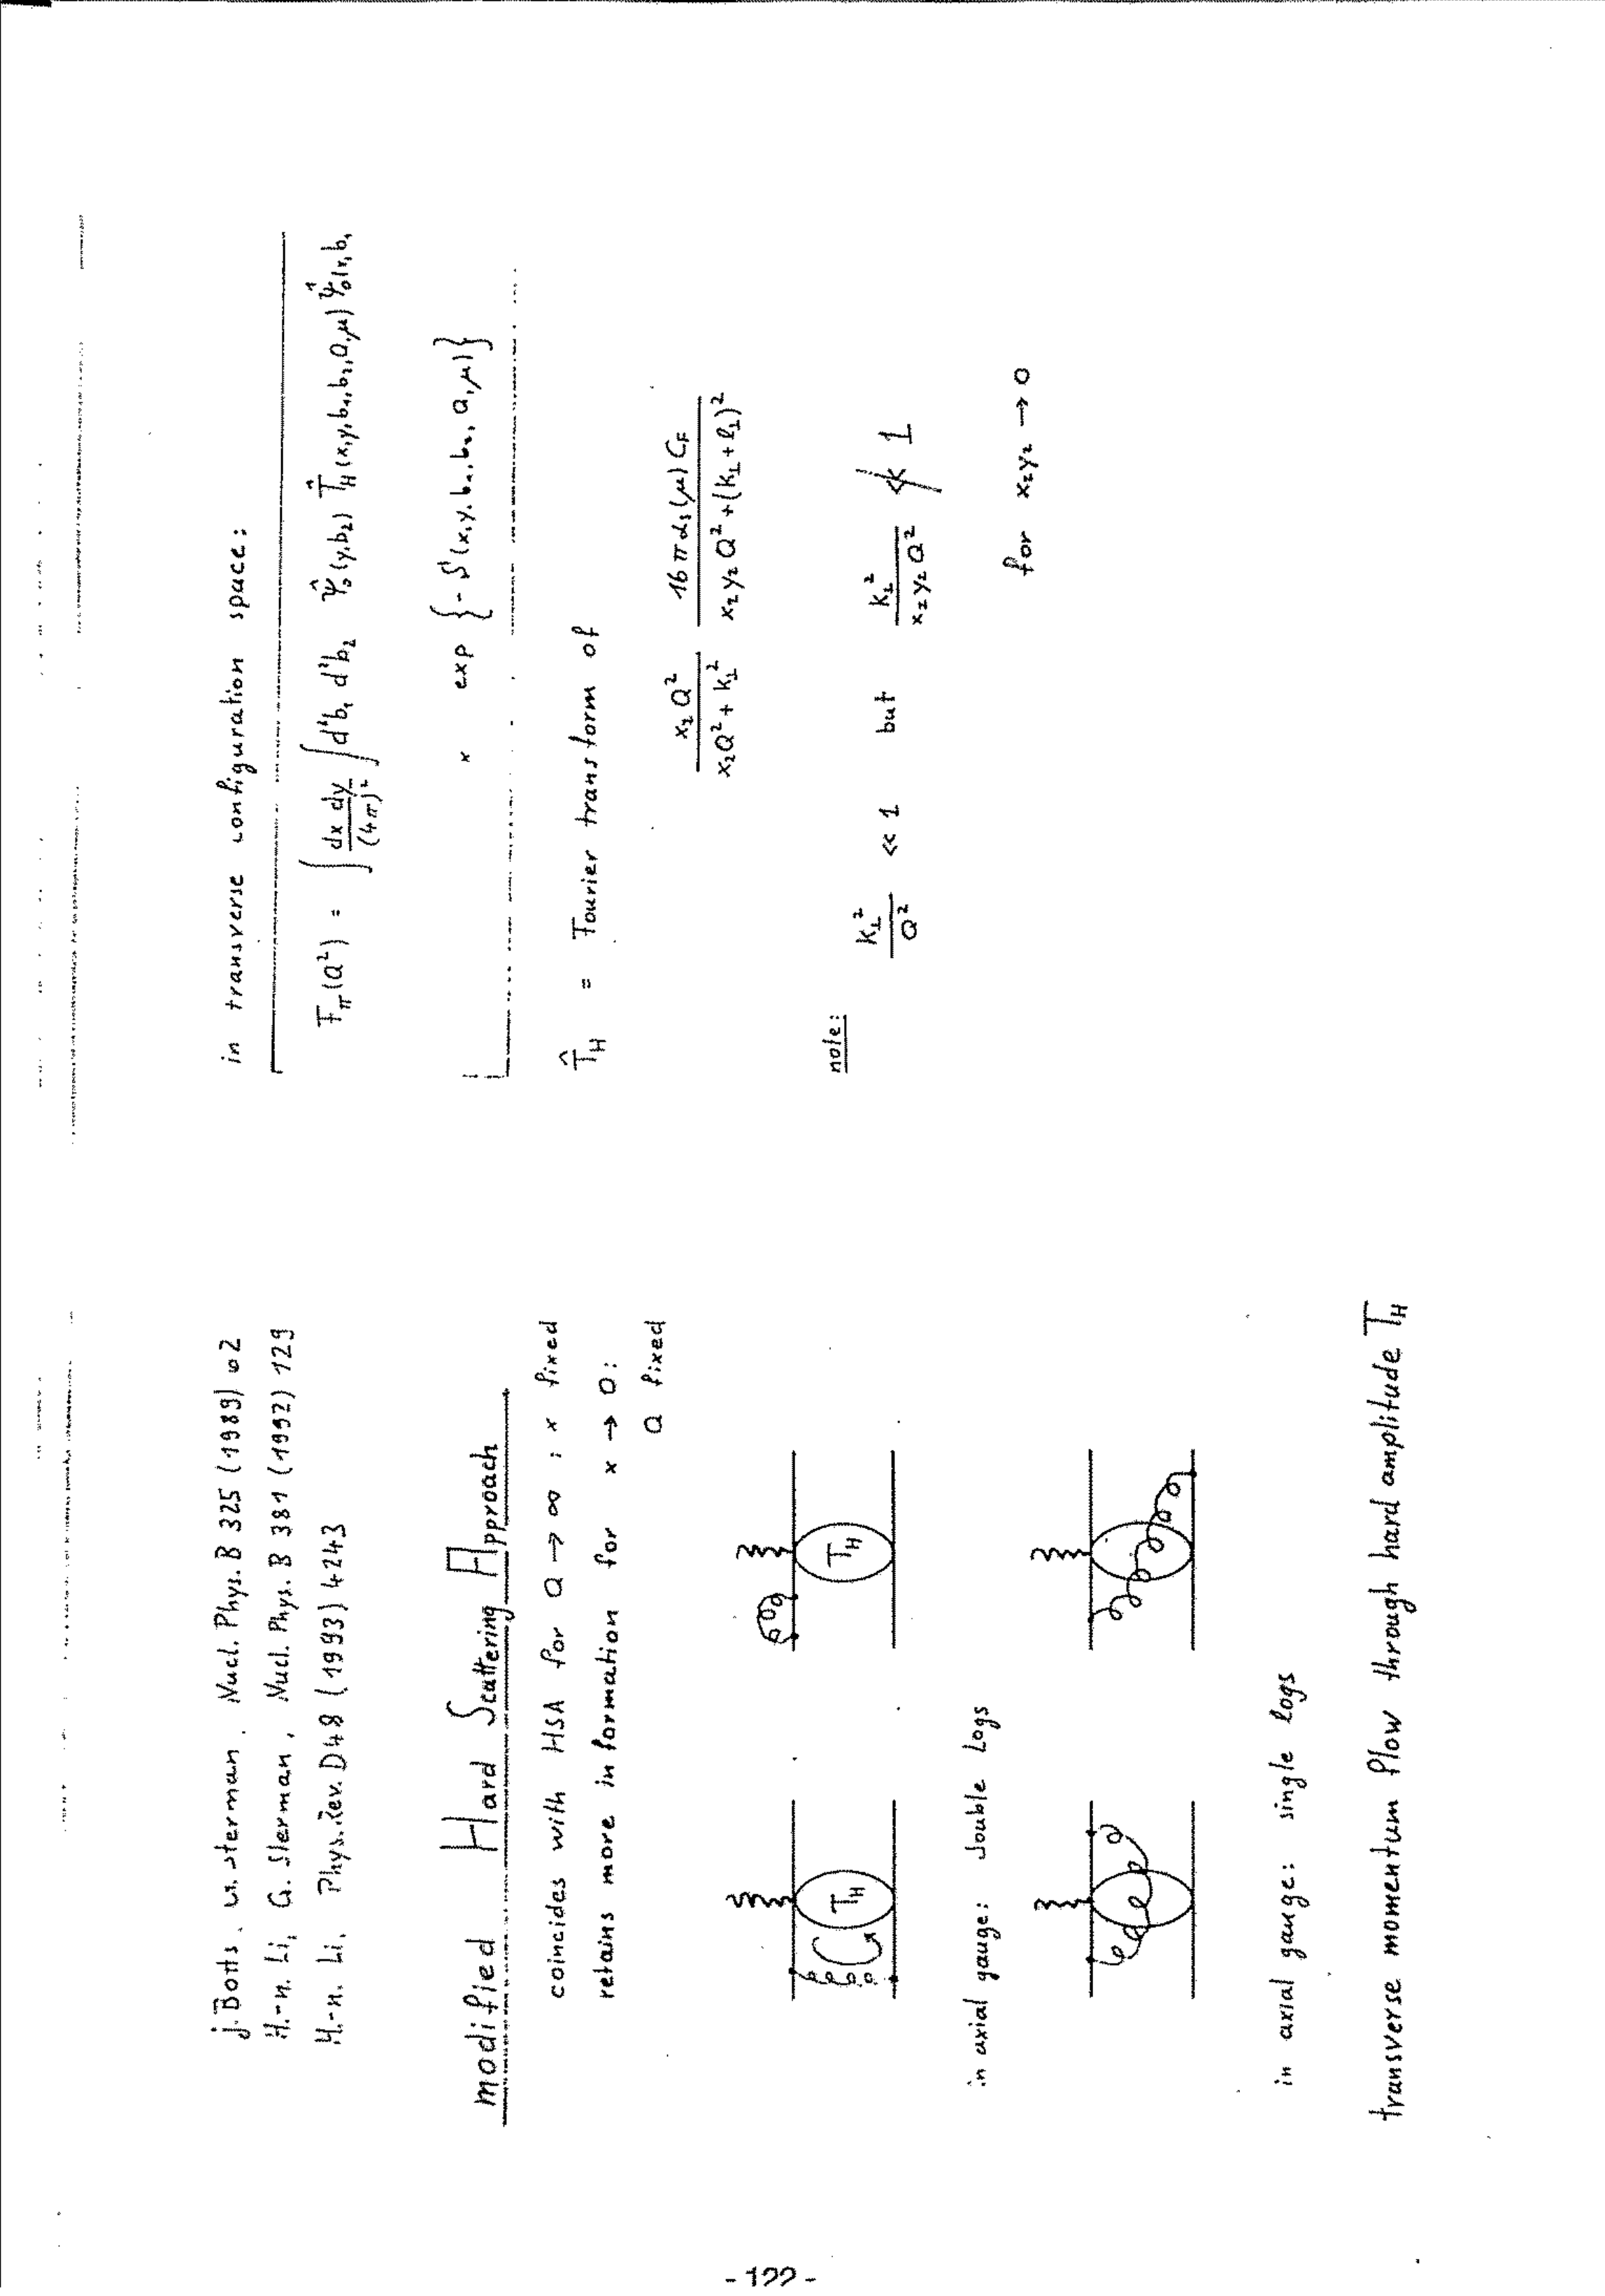 J. Botts, G. Sterman, Nucl. Phys. B 325 (1989) 62
H.-n. Li, G. Sterman, Nucl. Phys. B 381 (1992) 129
H.-n. Li, Phys. Rev. D48 (1993) 4243
modified Hard Scattering Approach
coincides with HSA for Q → ∞ ; x fixed
retains more information for x → 0:
Q fixed
T_H T_H
in axial gauge: double logs
in axial gauge: single logs
transverse momentum flow through hard amplitude T_H
in transverse configuration space:
F_π(Q²) = ∫ dx dy / (4π)² ∫ d²b₁ d²b₂ Ψ̂₀(y,b₂) T̂_H(x,y,b₁,b₂,Q,μ) Ψ̂₀(x,b₁
× exp {- S(x,y,b₁,b₂,Q,μ)}
T̂_H = Fourier transform of
x₂Q² / (x₂Q² + k⊥²) 16 π α_s(μ) C_F / (x₂y₂Q² + (k⊥+l⊥)²)
note:
k⊥² / Q² << 1 but k⊥² / (x₂y₂Q²) ≪̸ 1
for x₂y₂ → 0
- 122 -